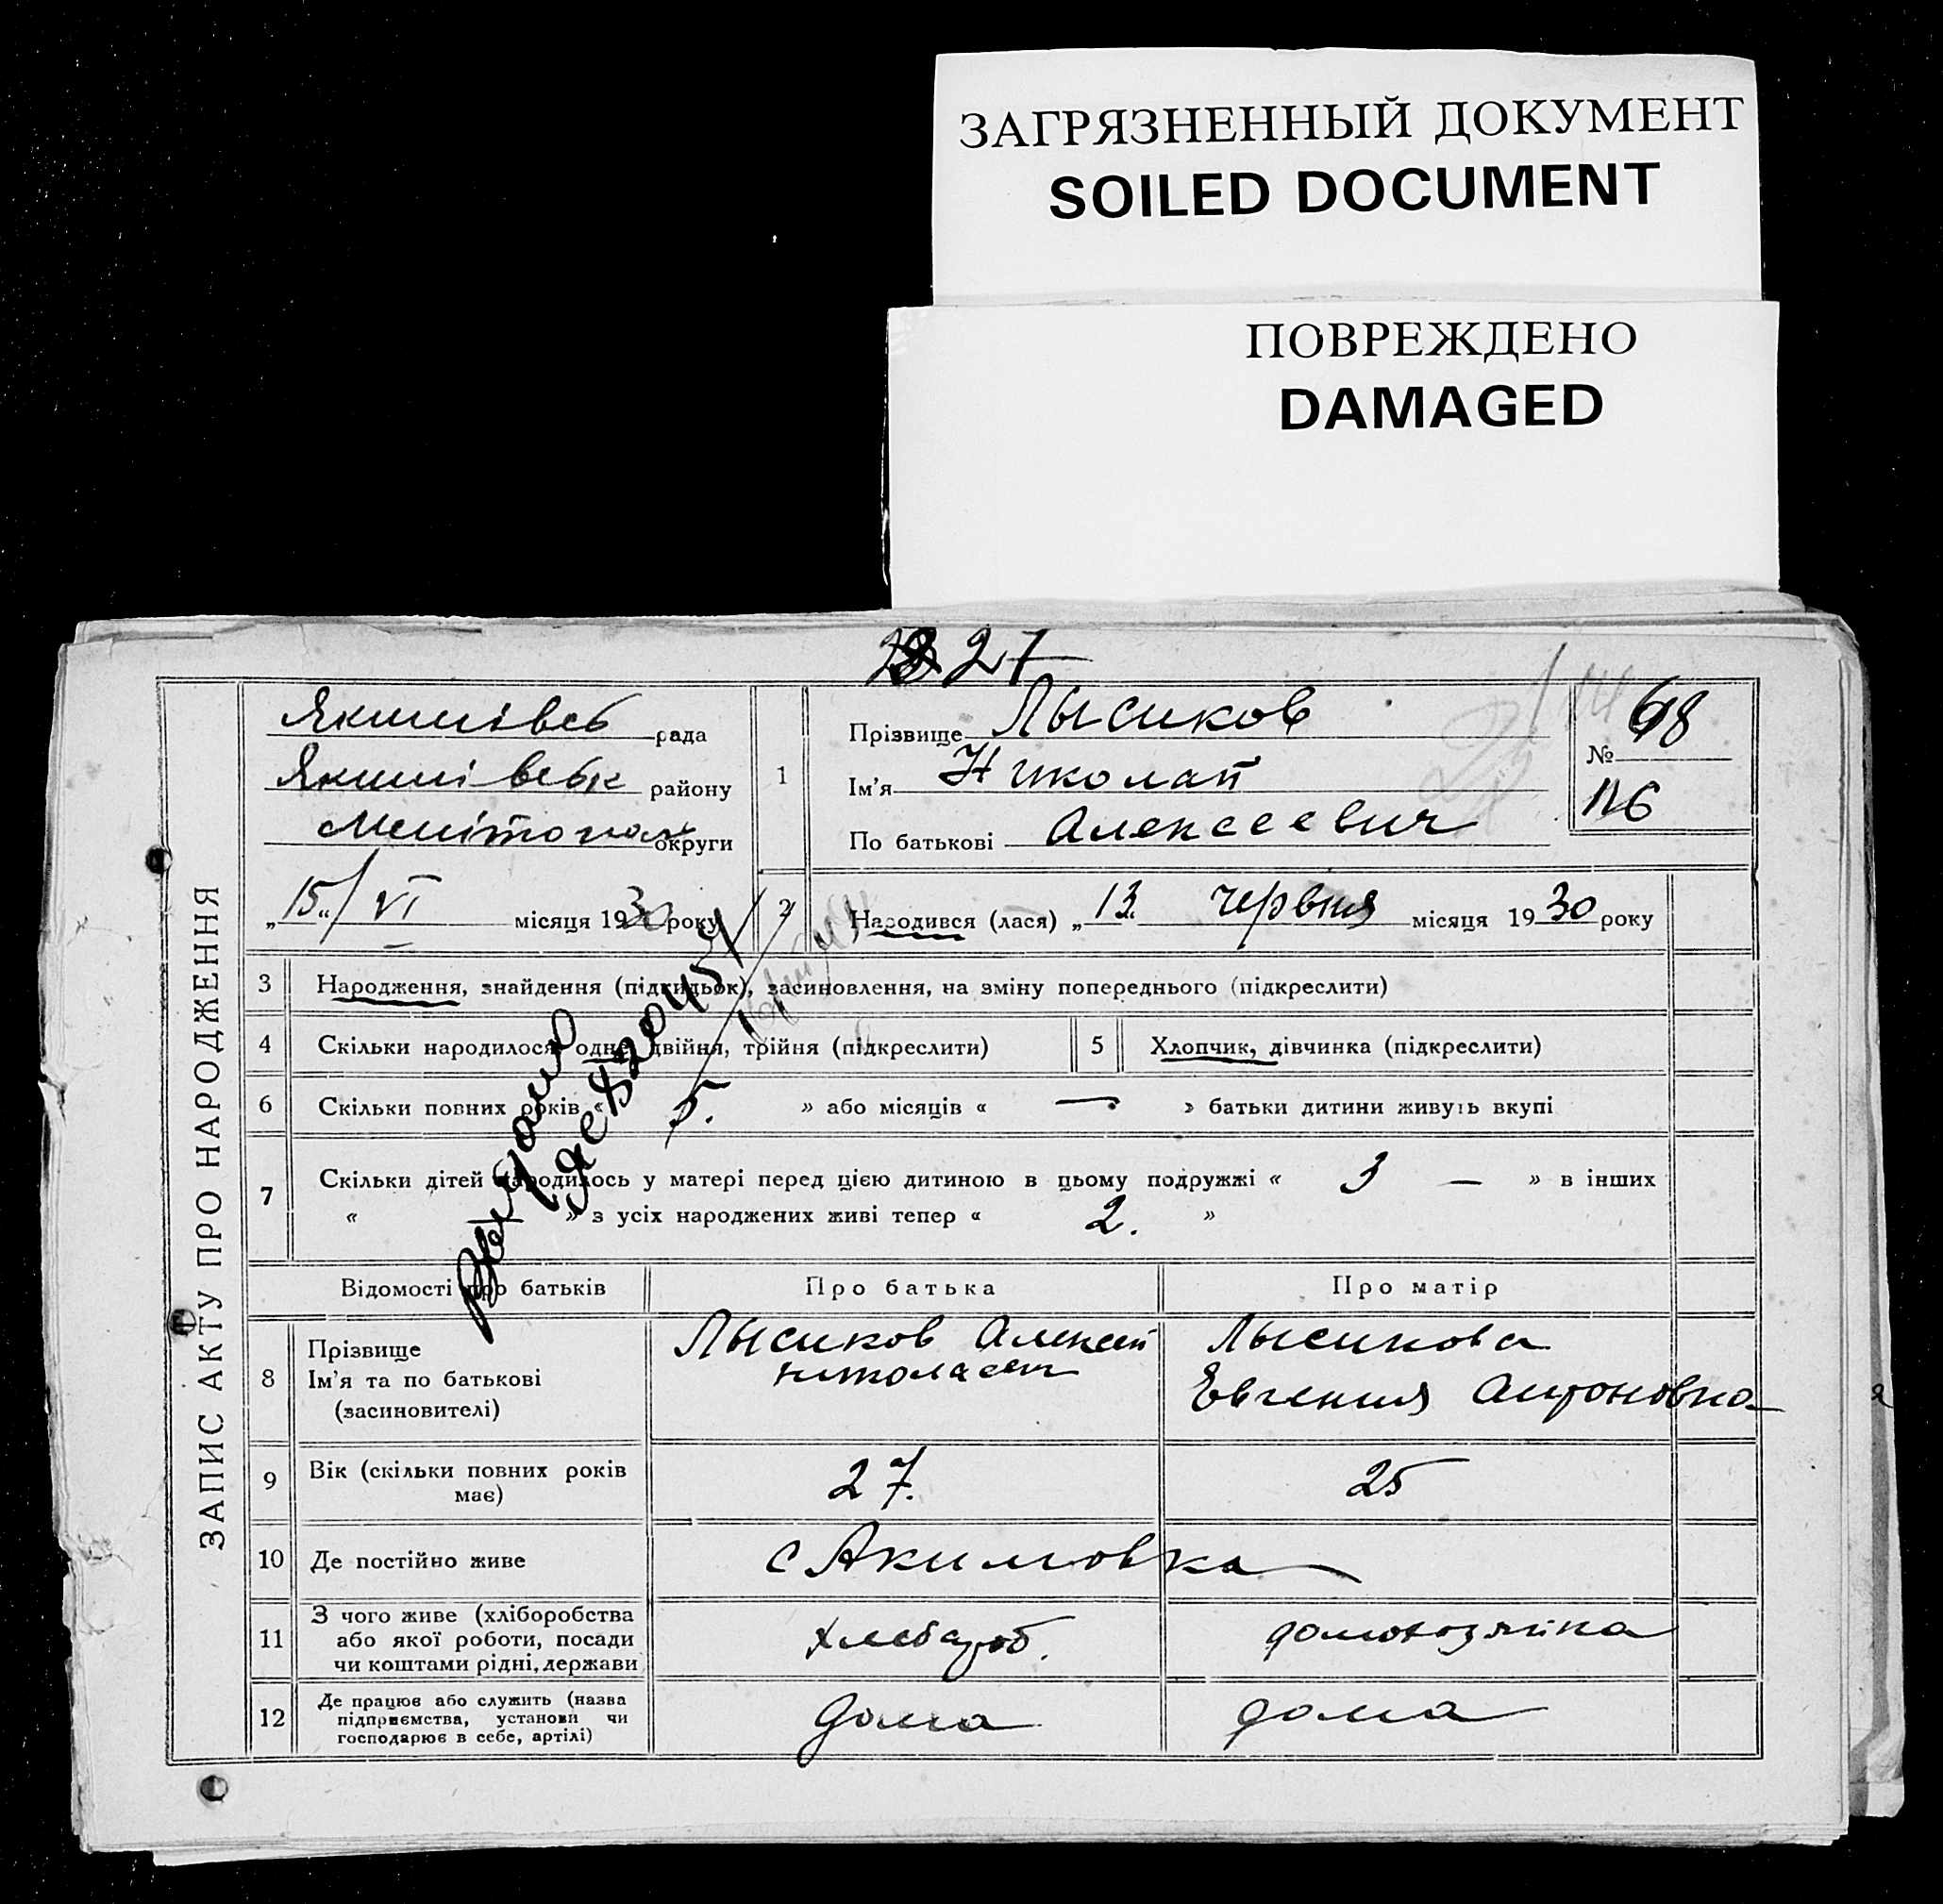 ЗАГРЯЗНЕННЫЙ ДОКУМЕНТ
SOILED DOCUMENT
ПОВРЕЖДЕНО
DAMAGED
27
ЗАПИС АКТУ ПРО НАРОДЖЕННЯ
Якимівсь рада
Якимівськ району
округи
„15“/VI місяця 1930 року
1
Прізвище Лысиков
Ім'я Николай
По батькові Алексеевич
№ 68
116
2 Народився (лася) „13“ червня місяця 1930 року
3 Народження, знайдення (підкидьок), засиновлення, на зміну попереднього (підкреслити)
4 Скільки народилося: одне, двійня, трійня (підкреслити)
5 Хлопчик, дівчинка (підкреслити)
6 Скільки повних років « 5. » або місяців « — » батьки дитини живуть вкупі
7 Скільки дітей народилось у матері перед цією дитиною в цьому подружжі « 3 — » в інших
« » з усіх народжених живі тепер « 2. »
Відомості про батьків Про батька Про матір
8 Прізвище
Ім'я та по батькові
(засиновителі)
Лысиков Алексей
Николаев
Лысикова
Евгения Антоновна
9 Вік (скільки повних років
має)
27. 25
10 Де постійно живе с Акимовка
11 З чого живе (хліборобства
або якої роботи, посади
чи коштами рідні, держави
хлебороб. домохозяйка
12 Де працює або служить (назва
підприємства, установи чи
господарює в себе, артілі)
дома дома